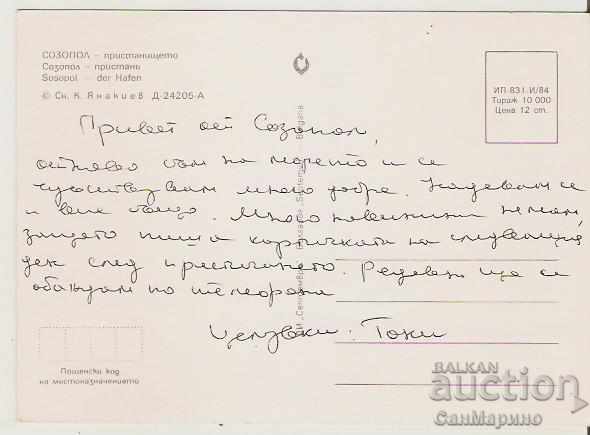 СОЗОПОЛ – пристанището
Созопол – пристань
Sosopol – der Hafen
© Сн. К. Янакиев Д-24205-А
ИП-831-И/84
Тираж 10 000
Цена 12 ст.
Привет от Созопол,
отново съм на морето и се
чувствувам много добре. Надявам се
и вие също. Много новини нямам,
защото пиша картичката на следващия
ден след пристигането. Редовно ще се
обаждам по телефона
Целувки. Тони
Пощенски код
на местоназначението
BALKAN
auction
СанМарино